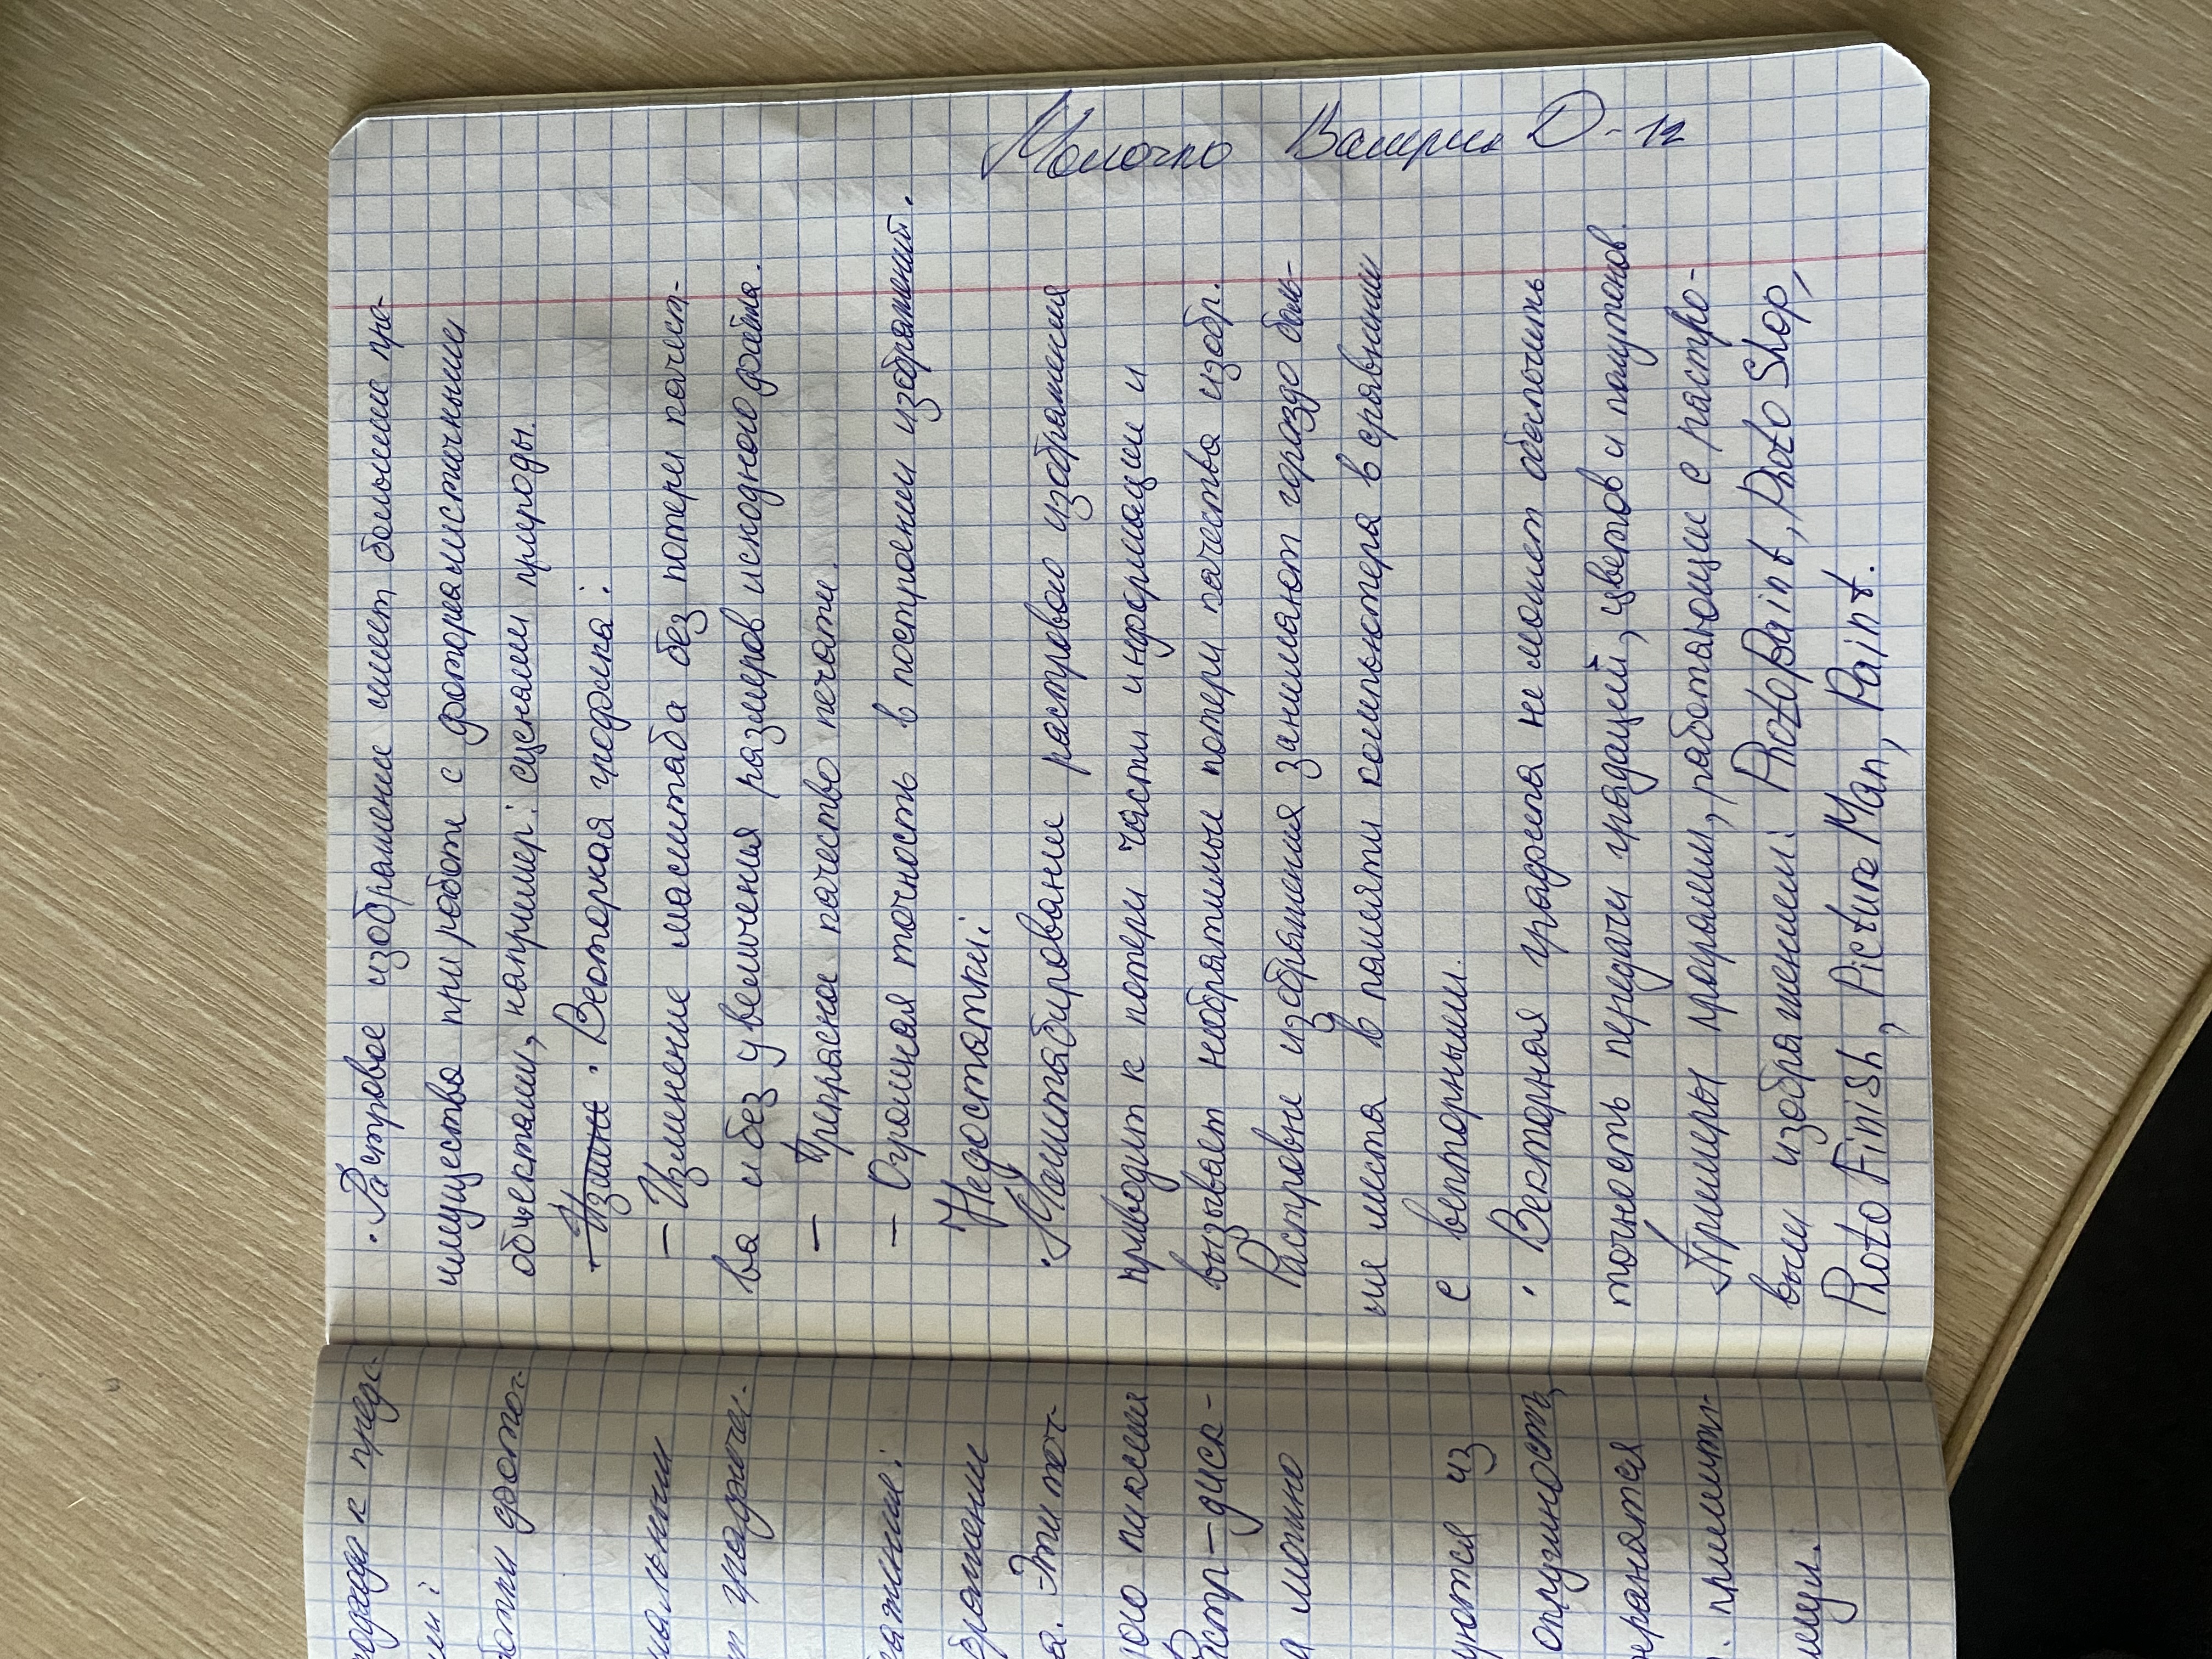 Молочко Валерия D-12
• Растровое изображение имеет большие пре-
имущества при работе с фотореалистичными
объектами, например: сценами природы.
• Векторная графика:
— Изменение масштаба без потери качест-
ва и без увеличения размеров исходного файла.
— Прекрасное качество печати.
— Огромная точность в построении изображений.
Недостатки:
• Маштабирование растрового изображения
приводит к потери части информации и
вызывает необратимые потери качества изобр.
Растровые изображения занимают гораздо боль-
ше места в памяти компьютера в сравнении
с векторными.
• Векторная графика не может обеспечить
точность передачи градаций, цветов и полутонов.
Примеры программ, работающие с растро-
выми изображениями: PhotoPaint, PhotoShop,
PhotoFinish, PictureMan, Paint.
подхода к предс-
ми:
ботки фотог-
нальными
т графичес-
ажение:
бражении
а. Эти точ-
ого пиксели
Растр – диск-
и можно
уются из
окружность
охраняется
. примити-